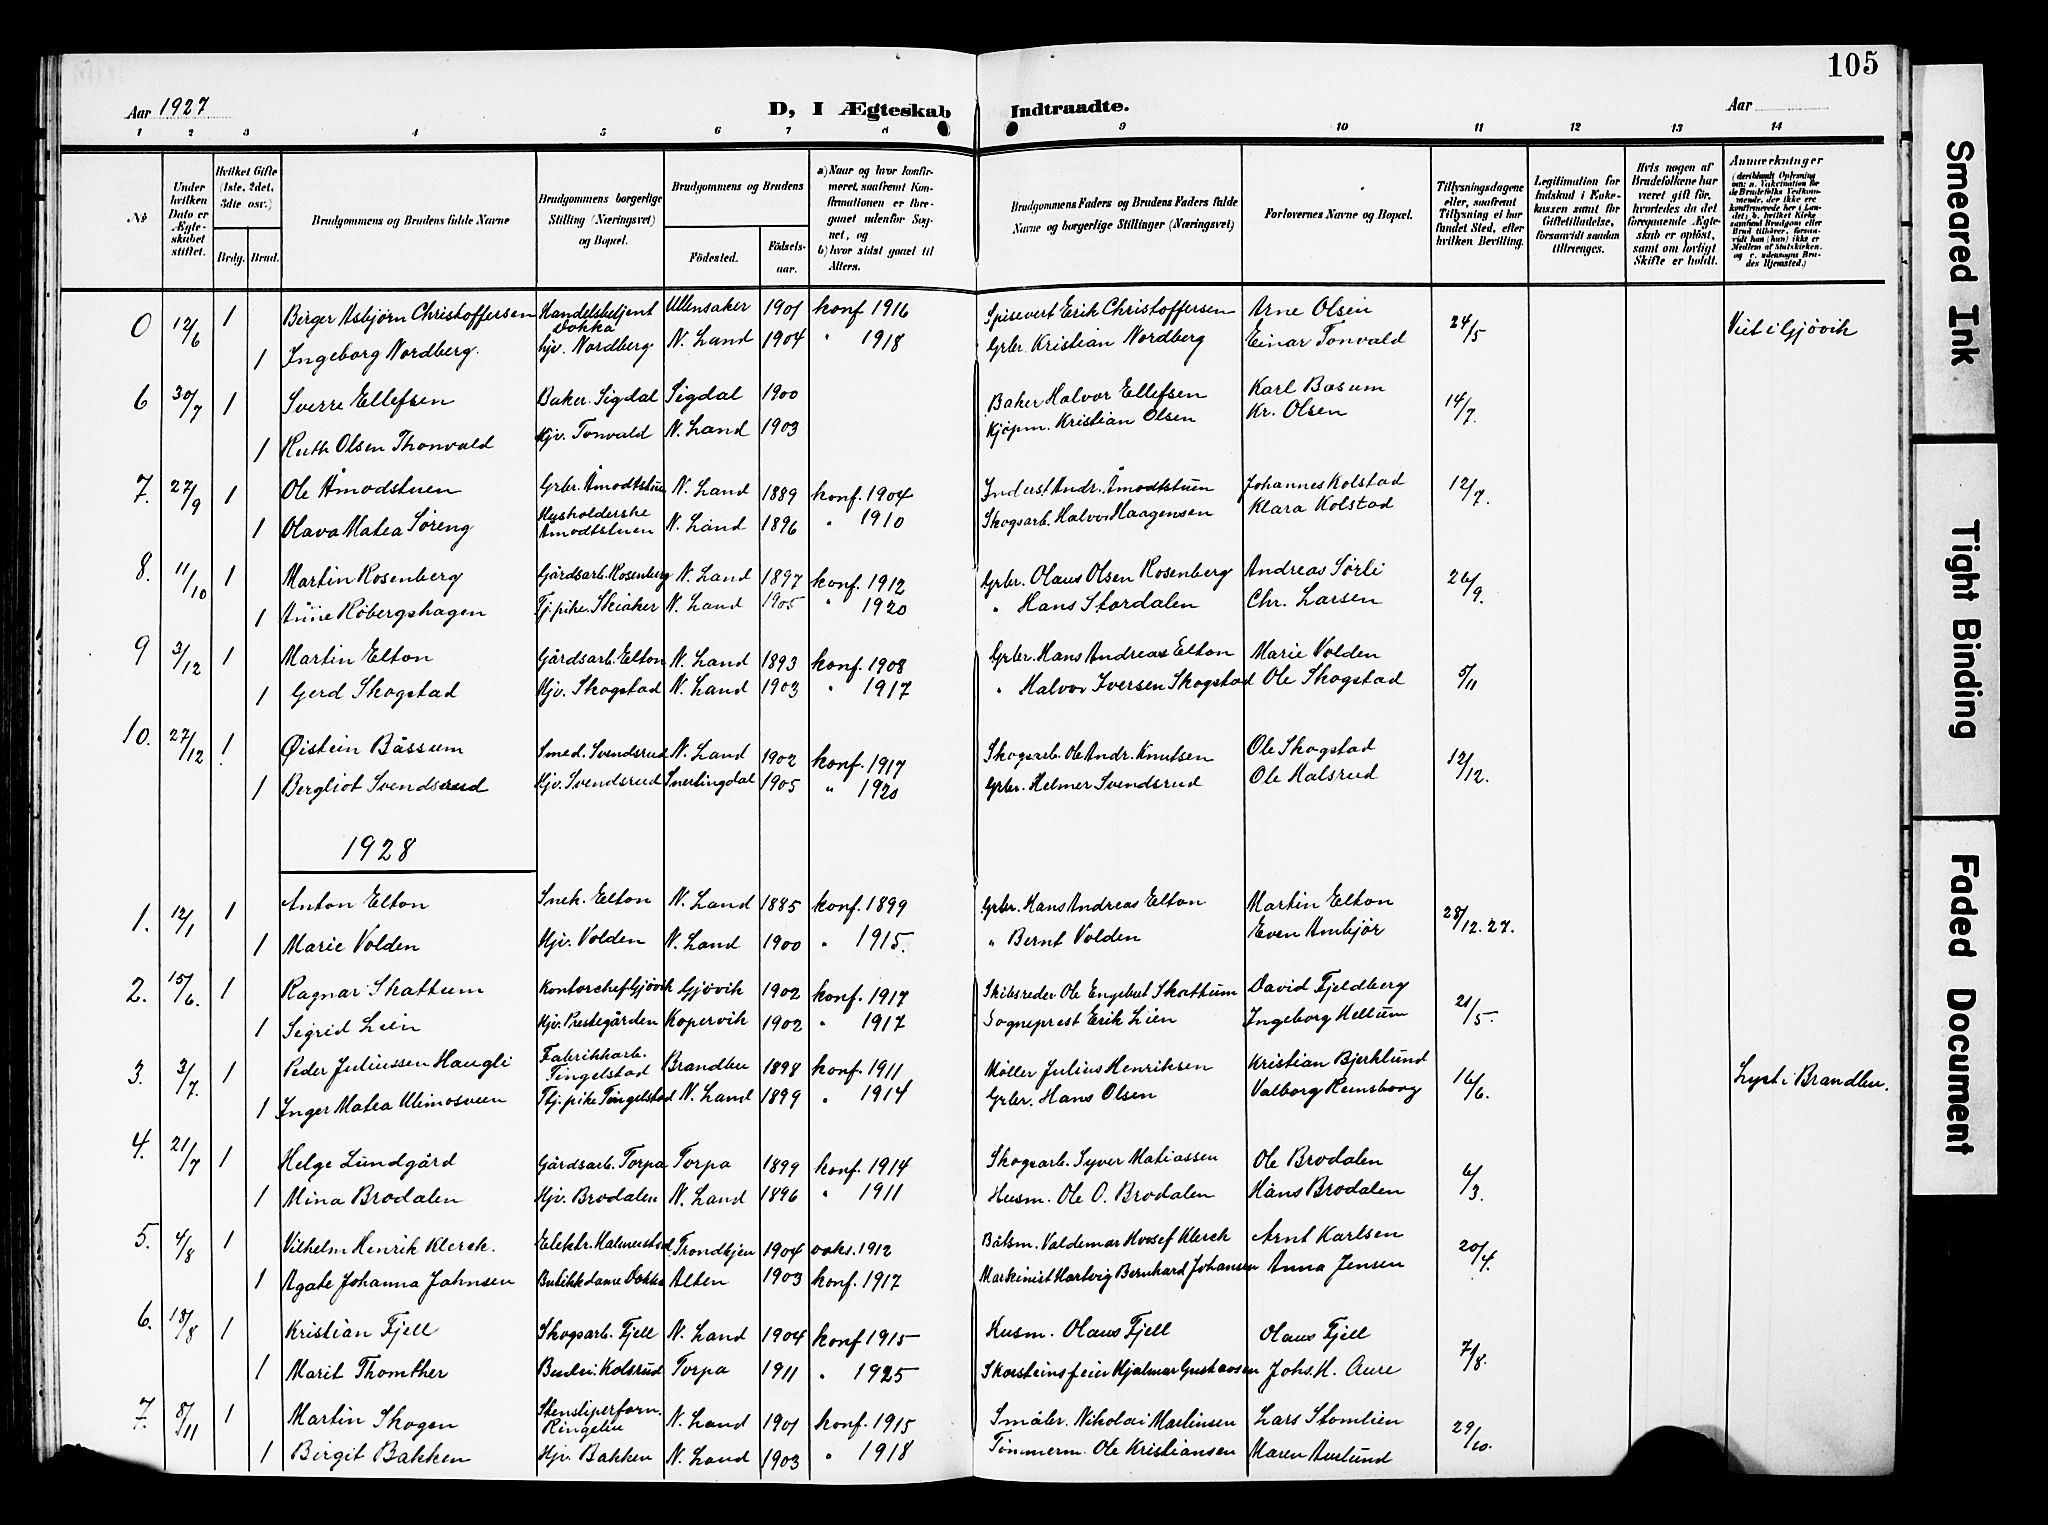 105
Aar 1927 D, I Ægteskab Indtraadte. Aar
1 2 3 4 5 6 7 8 9 10 11 12 13 14
№
Under hvilken Dato er Ægteskabet stiftet.
Hvilket Gifte (1ste, 2det, 3die osv.)
Brdg. Brud.
Brudgommens og Brudens fulde Navne
Brudgommens borgerlige Stilling (Næringsvei) og Bopæl.
Brudgommens og Brudens
Fødested. Fødselsaar.
a) Naar og hvor konfirmeret, saafremt Konfirmationen er foregaaet udenfor Sognet, og
b) hvor sidst gaaet til Alters.
Brudgommens Faders og Brudens Faders fulde Navne og borgerlige Stillinger (Næringsvei)
Forlovernes Navne og Bopæl.
Tillysningsdagene eller, saafremt Tillysning ei har fundet Sted, efter hvilken Bevilling.
Legitimation for Indskud i Enkekassen samt for Giftetilladelse, forsaavidt saadan tiltrænges.
Hvis nogen af Brudefolkene har været gift før, hvorledes da det foregaaende Ægteskab er opløst, samt om lovligt Skifte er holdt.
Anmærkninger
0 12/6 1 Berger Asbjørn Christoffersen Handelsbetjent Dokka Ullensaker 1901 konf 1916 Spisevert Erik Christoffersen Arne Olsen 24/5 Viet i Gjøvik
1 Ingeborg Nordberg. hjv. Nordberg N. Land 1904 " 1918 Grbr. Kristian Nordberg Einar Tonvald
6 30/7 1 Sverre Ellefsen Baker. Sigdal Sigdal 1900 Baker Halvor Ellefsen Karl Basum 14/7.
1 Ruth Olsen Thonvald Hjv. Tonvald N. Land 1903 Kjøpm. Kristian Olsen Kr. Olsen
7. 27/9 1 Ole Åmodstuen Grbr. Åmodtstuen N. Land 1889 konf. 1904 Inderst Andr. Åmodtstuen Johannes Kolstad 12/7.
1 Olava Matea Søreng Husholderske Åmodtstuen N. Land 1896 " 1910 Skogsarb. Halvor Haagensen Klara Kolstad
8. 11/10 1 Martin Rosenberg Gårdsarb. Rosenberg N. Land 1897 konf. 1912 Grbr. Olaus Olsen Rosenberg Andreas Sørli 26/9.
1 Anne Røbergshagen Tj. pike. Skiaker N. Land 1905 " 1920 " Hans Stordalen Chr. Larsen
9 3/12 1 Martin Elton Gårdsarb. Elton N. Land 1893 konf. 1908 Grbr. Hans Andreas Elton Marie Volden 5/11
1 Gerd Skogstad Hjv. Skogstad N. Land 1903 " 1917 " Halvor Iversen Skogstad Ole Skogstad
10. 27/12 1 Øistein Båssum Smed. Svendsrud N. Land 1902 konf. 1917 Skogsarb. Ole Andr. Knutsen Ole Skogstad 12/12.
1 Bergliot Svendsrud Hjv. Svendsrud Snertingdal 1905 " 1920 Grbr. Helmer Svendsrud Ole Halsrud
1928
1. 12/1 1 Anton Elton Snek. Elton N. Land 1885 konf. 1899 Grbr. Hans Andreas Elton Martin Elton 28/12. 27.
1 Marie Volden Hjv. Volden N. Land 1900 " 1915. " Bernt Volden Even Ambjør
2. 15/6. 1 Ragnar Skattum Kontorchef Gjøvik Gjøvik 1902 konf. 1917 Skibsreder Ole Engebret Skattum David Fjeldberg 21/5.
1 Sigrid Lien Hjv. Prestegården Kopervik 1902 " 1917 Sogneprest Erik Lien Ingeborg Heltum
3. 3/7. 1 Peder Juliussen Haugli Fabrikkarb. Tingelstad Brandbu 1898 konf. 1911 Møller Julius Henriksen Kristian Bjerklund 16/6. Lyst i Brandbu.
1 Inger Matea Ulimosveen Thj. pike Tingelstad N. Land 1899 " 1914 Grbr. Hans Olsen Valborg Remsborg
4. 21/7 1 Helge Lundgård Gårdsarb. Torpa Torpa 1899 konf. 1914 Skogsarb. Syver Matiassen Ole Brodalen 6/3.
1 Mina Brodalen Hjv. Brodalen N. Land 1896 " 1911 Husm. Ole O. Brodalen Hans Brodalen
5. 4/8 1 Vilhelm Henrik Klerck. Elektr. Trondhjem 1904 1912 Båtsm. Valdemar Klerck Arnt Karlsen 20/4.
1 Agate Johanna Johnsen Butikkdame Dokka Alten 1903 konf. 1917 Maskinist Hartvig Bernhard Johansen Anna Jensen
6. 18/8 1 Kristian Fjell Skogsarb. Fjell N. Land 1904 konf 1915 Husm. Olaus Fjell Olaus Fjell 7/8.
1 Marit Thomther Kolsrud Torpa 1911 " 1925 Skorsteinsfeier Hjalmar Gustavsen Johs. H. Aure
7. 8/11 1 Martin Skogen Ringelia N. Land 1901 konf. 1915 Småbr. Nikolai Martinsen Lars Stomlien 29/10.
1 Birgit Bakken Hjv. Bakken N. Land 1903 " 1918 Tømmerm. Ole Kristiansen Maren Aurlund
Smeared Ink
Tight Binding
Faded Document